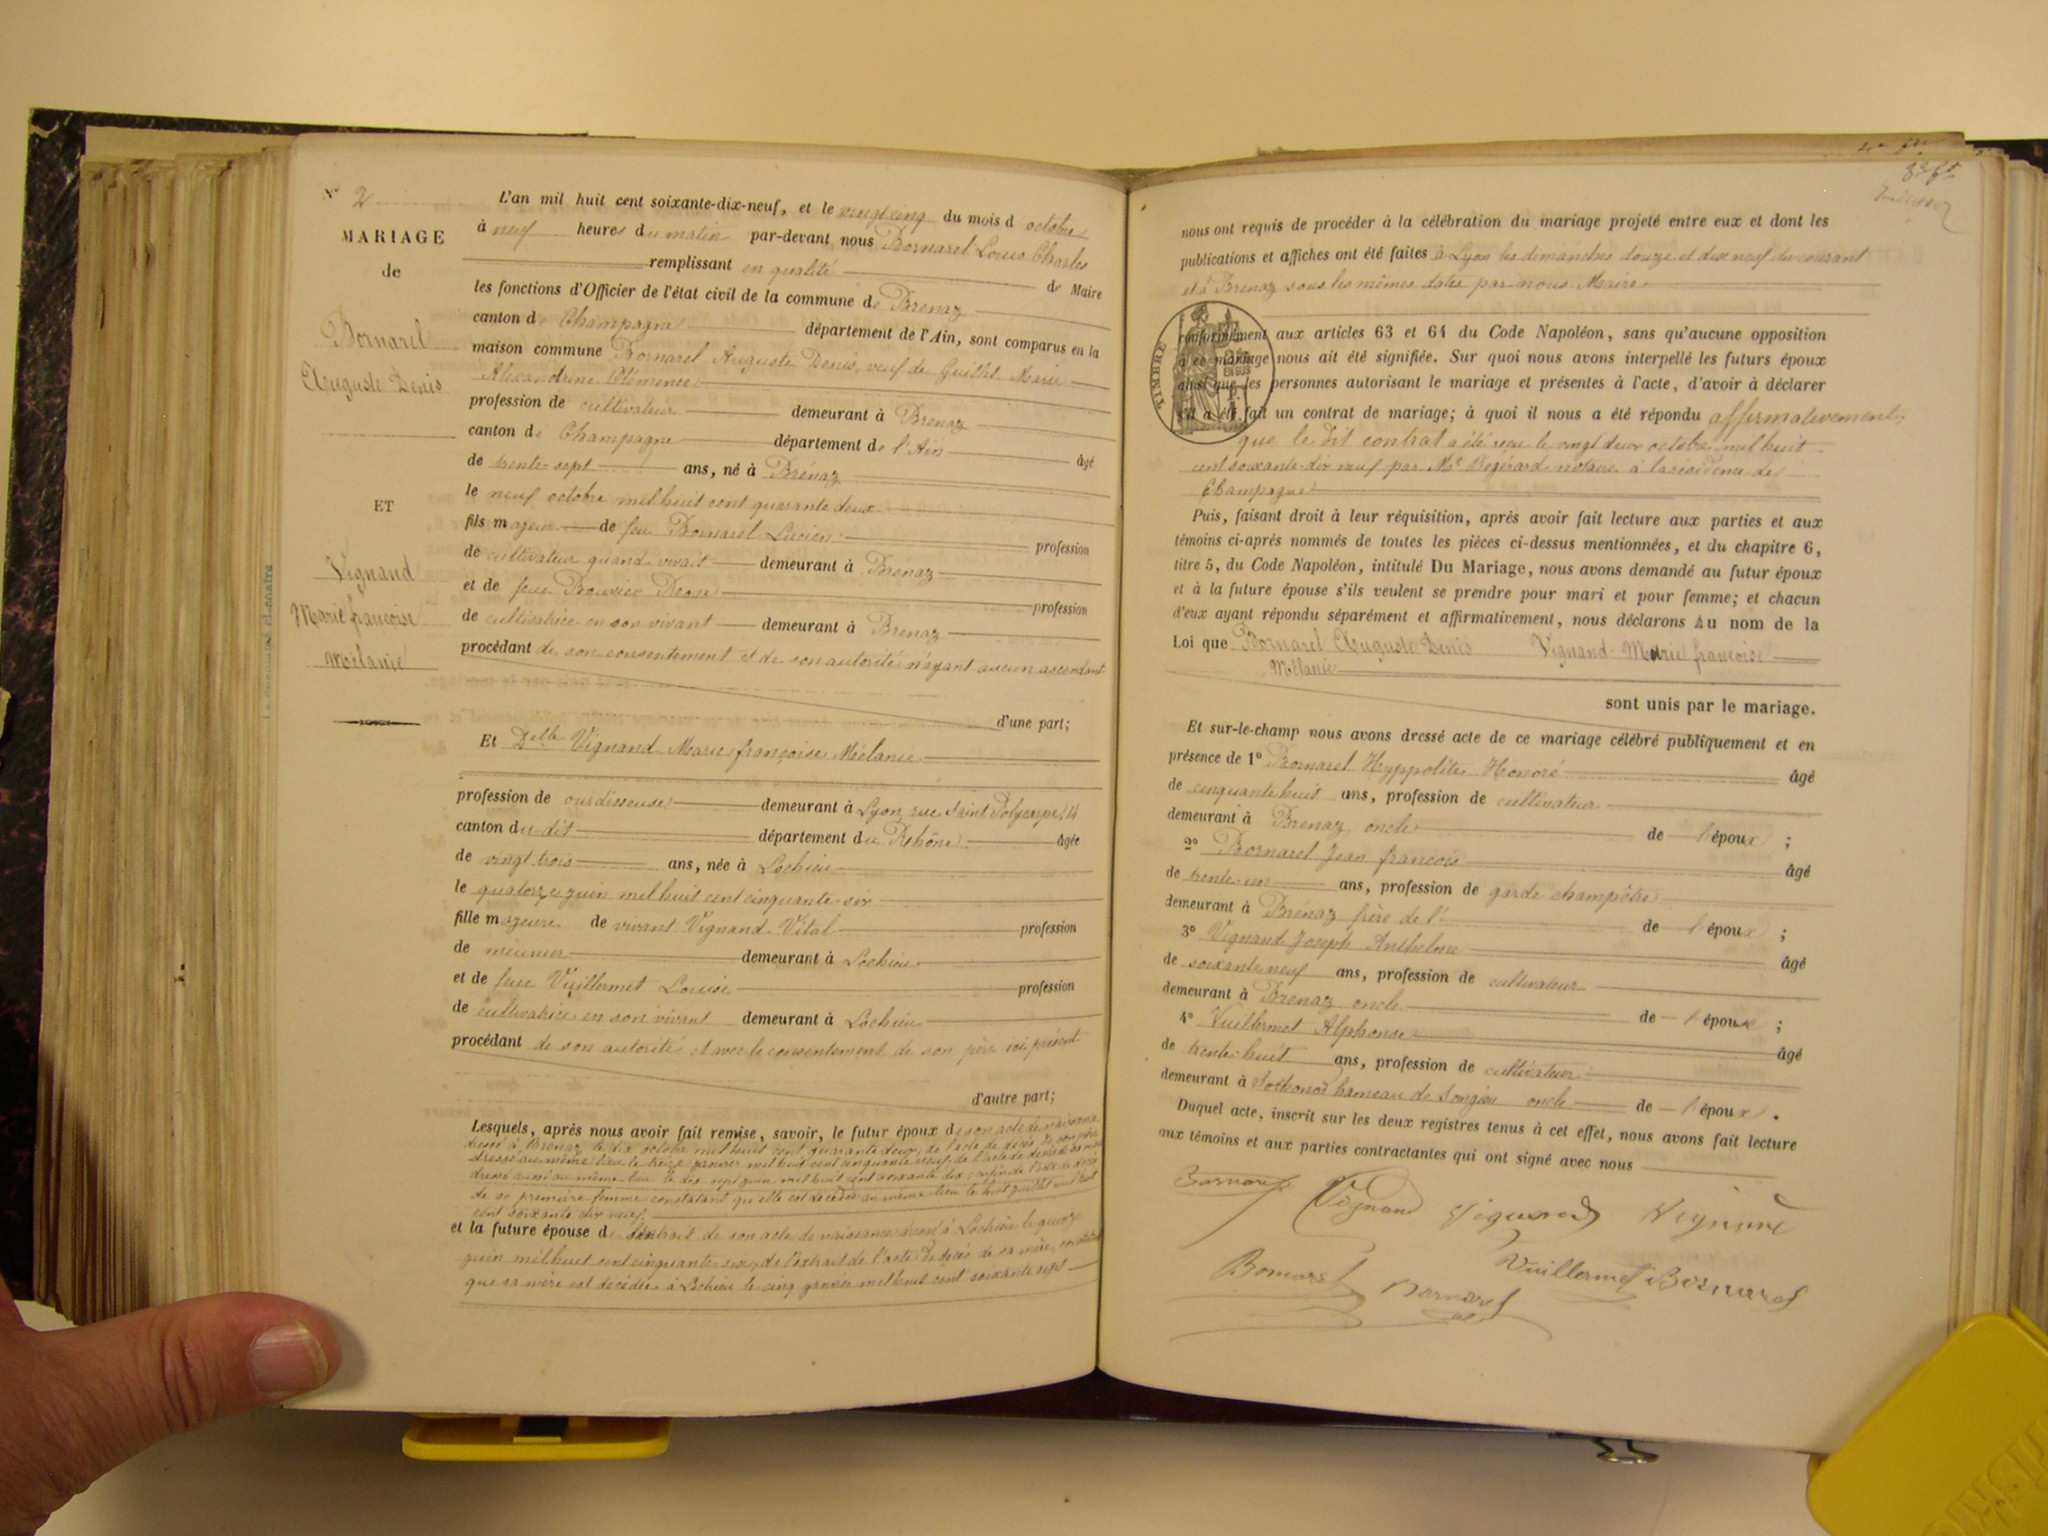 N° 2
MARIAGE
de
Bornarel
Auguste Denis
ET
Vignand
Marie françoise
Mélanie
L'an mil huit cent soixante-dix-neuf, et le vingt cinq du mois d octobre
à neuf heures du matin par-devant nous Bornarel Louis Charles
remplissant en qualité de Maire
les fonctions d'Officier de l'état civil de la commune de Brénaz
canton de Champagne département de l'Ain, sont comparus en la
maison commune Bornarel Auguste Denis, veuf de Guillot Marie
Alexandrine Clémence
profession de cultivateur demeurant à Brenaz
canton de Champagne département de l'Ain âgé
de trente-sept ans, né à Brénaz
le neuf octobre mil huit cent quarante deux
fils majeur de feu Bornarel Lucien profession
de cultivateur quand vivait demeurant à Brenaz
et de feue profession
de cultivatrice en son vivant demeurant à Brenaz
procédant de son consentement et de son autorité n'ayant aucun ascendant
d'une part;
Et Delle Vignand Marie françoise Mélanie
profession de ourdisseuse demeurant à Lyon, rue Saint Polycarpe, 14
canton du dit département du Rhône âgée
de vingt trois ans, née à Lochieu
le quatorze juin mil huit cent cinquante-six
fille majeure de vivant Vignand Vital profession
de meunier demeurant à Lochieu
et de feue Vuillermet Louise profession
de cultivatrice en son vivant demeurant à Lochieu
procédant de son autorité et avec le consentement de son père ici présent
d'autre part;
Lesquels, après nous avoir fait remise, savoir, le futur époux de son acte de naissance
dressé à Brenaz le dix octobre mil huit cent quarante deux, de l'acte de décès de son père
dressé au même lieu le treize janvier mil huit cent cinquante neuf, de l'acte de décès de sa mère
dressé aussi au même lieu le dix sept juin mil huit cent soixante dix, enfin de l'acte de décès
de sa première femme constatant qu'elle est décédée au même lieu le huit juillet mil huit
cent soixante dix neuf
et la future épouse de l'extrait de son acte de naissance dressé à Lochieu le quinze
juin mil huit cent cinquante six, de l'extrait de l'acte de décès de sa mère, constatant
que sa mère est décédée à Lochieu le cinq janvier mil huit cent soixante sept
nous ont requis de procéder à la célébration du mariage projeté entre eux et dont les
publications et affiches ont été faites à Lyon les dimanches douze et dix neuf du courant
et à Brenaz sous les mêmes dates par nous Maire
TIMBRE
conformément aux articles 63 et 64 du Code Napoléon, sans qu'aucune opposition
à ce mariage nous ait été signifiée. Sur quoi nous avons interpellé les futurs époux
ainsi que les personnes autorisant le mariage et présentes à l'acte, d'avoir à déclarer
s'il a été fait un contrat de mariage; à quoi il nous a été répondu affirmativement,
que le dit contrat a été reçu le vingt deux octobre mil huit
cent soixante-dix neuf par Me notaire à la résidence de
Champagne
Puis, faisant droit à leur réquisition, après avoir fait lecture aux parties et aux
témoins ci-après nommés de toutes les pièces ci-dessus mentionnées, et du chapitre 6,
titre 5, du Code Napoléon, intitulé Du Mariage, nous avons demandé au futur époux
et à la future épouse s'ils veulent se prendre pour mari et pour femme; et chacun
d'eux ayant répondu séparément et affirmativement, nous déclarons Au nom de la
Loi que Bornarel Auguste Denis Vignand Marie françoise
Mélanie
sont unis par le mariage.
Et sur-le-champ nous avons dressé acte de ce mariage célébré publiquement et en
présence de 1° Bornarel Hyppolite Honoré âgé
de cinquante huit ans, profession de cultivateur
demeurant à Brenaz, oncle de l'époux ;
2° Bornarel Jean françois âgé
de trente un ans, profession de garde champêtre
demeurant à Brénaz frère de l' de l'époux ;
3° Vignand Joseph Anthelme âgé
de soixante neuf ans, profession de cultivateur
demeurant à Brenaz oncle de l'épouse ;
4° Vuillermet Alphonse âgé
de trente-huit ans, profession de cultivateur
demeurant à Sothonod hameau de Songieu oncle de l'époux .
Duquel acte, inscrit sur les deux registres tenus à cet effet, nous avons fait lecture
aux témoins et aux parties contractantes qui ont signé avec nous
Bornarel Vignand Vignand Vignand
Bornarel Bornarel Vuillermet Bornarel